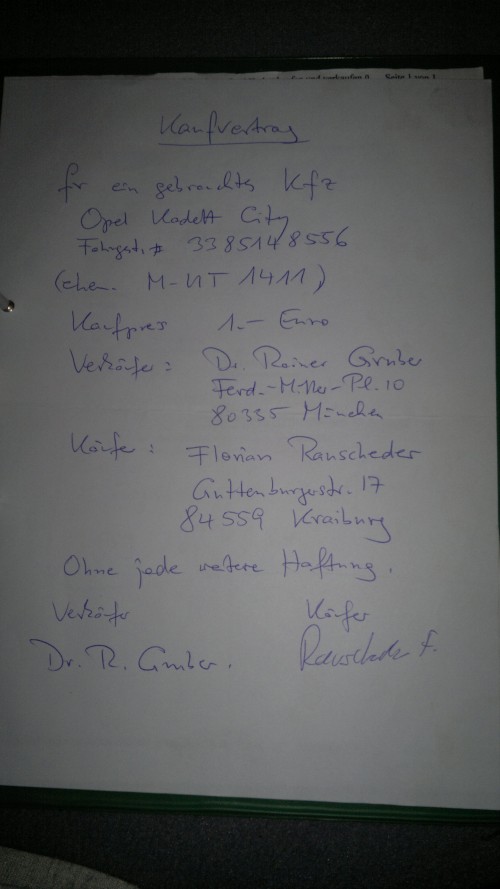 Seite 1 von 1
Kaufvertrag
für ein gebrauchtes Kfz
Opel Kadett City
Fahrgest. # 3385148556
(ehem. M-UT 1411)
Kaufpreis 1.- Euro
Verkäufer: Dr. Rainer Gruber
Ferd.-Miller-Pl. 10
80335 München
Käufer: Florian Rauscheder
Guttenburgerstr. 17
84559 Kraiburg
Ohne jede weitere Haftung.
Verkäufer Käufer
Dr. R. Gruber. Rauscheder F.